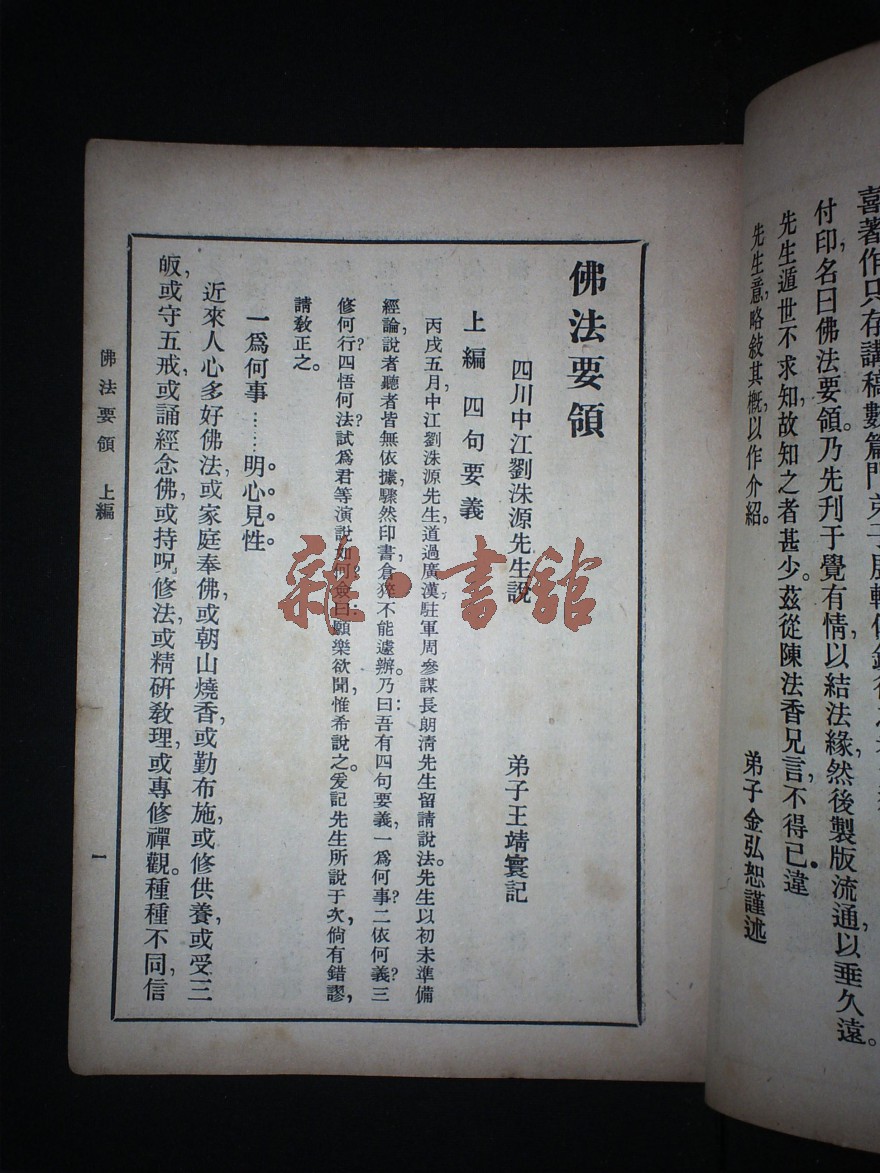 喜著作只存講稿數篇門弟子
付印，名曰佛法要領。乃先刊于覺有情，以結法緣，然後製版流通，以垂久遠。
先生遁世不求知，故知之者甚少。茲從陳法香兄言，不得已違
先生意，略敍其概，以作介紹。
弟子金弘恕謹述
佛法要領
四川中江劉洙源先生說
弟子王靖寰記
上編　四句要義
丙戌五月，中江劉洙源先生，道過廣漢，駐軍周參謀長朗清先生留請說法。先生以初未準備
經論，說者聽者皆無依據，驟然印書，倉猝不能遽辦。乃曰：吾有四句要義，一爲何事？二依何義？三
修何行？四悟何法？試爲君等演說如何？僉曰：願樂欲聞，惟希說之。爰記先生所說于次，倘有錯謬，
請敎正之。
一爲何事……明心見性。
近來人心多好佛法，或家庭奉佛，或朝山燒香，或勤布施，或修供養，或受三
皈，或守五戒，或誦經念佛，或持呪修法，或精研敎理，或專修禪觀。種種不同，信
佛法要領　上編
一
雜·書館